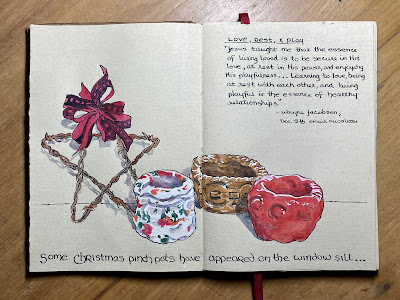 Love, Rest, & Play
"Jesus taught me that the essence
of living loved is to be secure in His
love, at rest in His power, and enjoying
His playfulness... Learning to love, being
at rest with each other, and being
playful is the essence of healthy
relationships."
- Wayne Jacobsen,
Dec 5th email newsletter
Some Christmas pinch pots have appeared on the window sill...